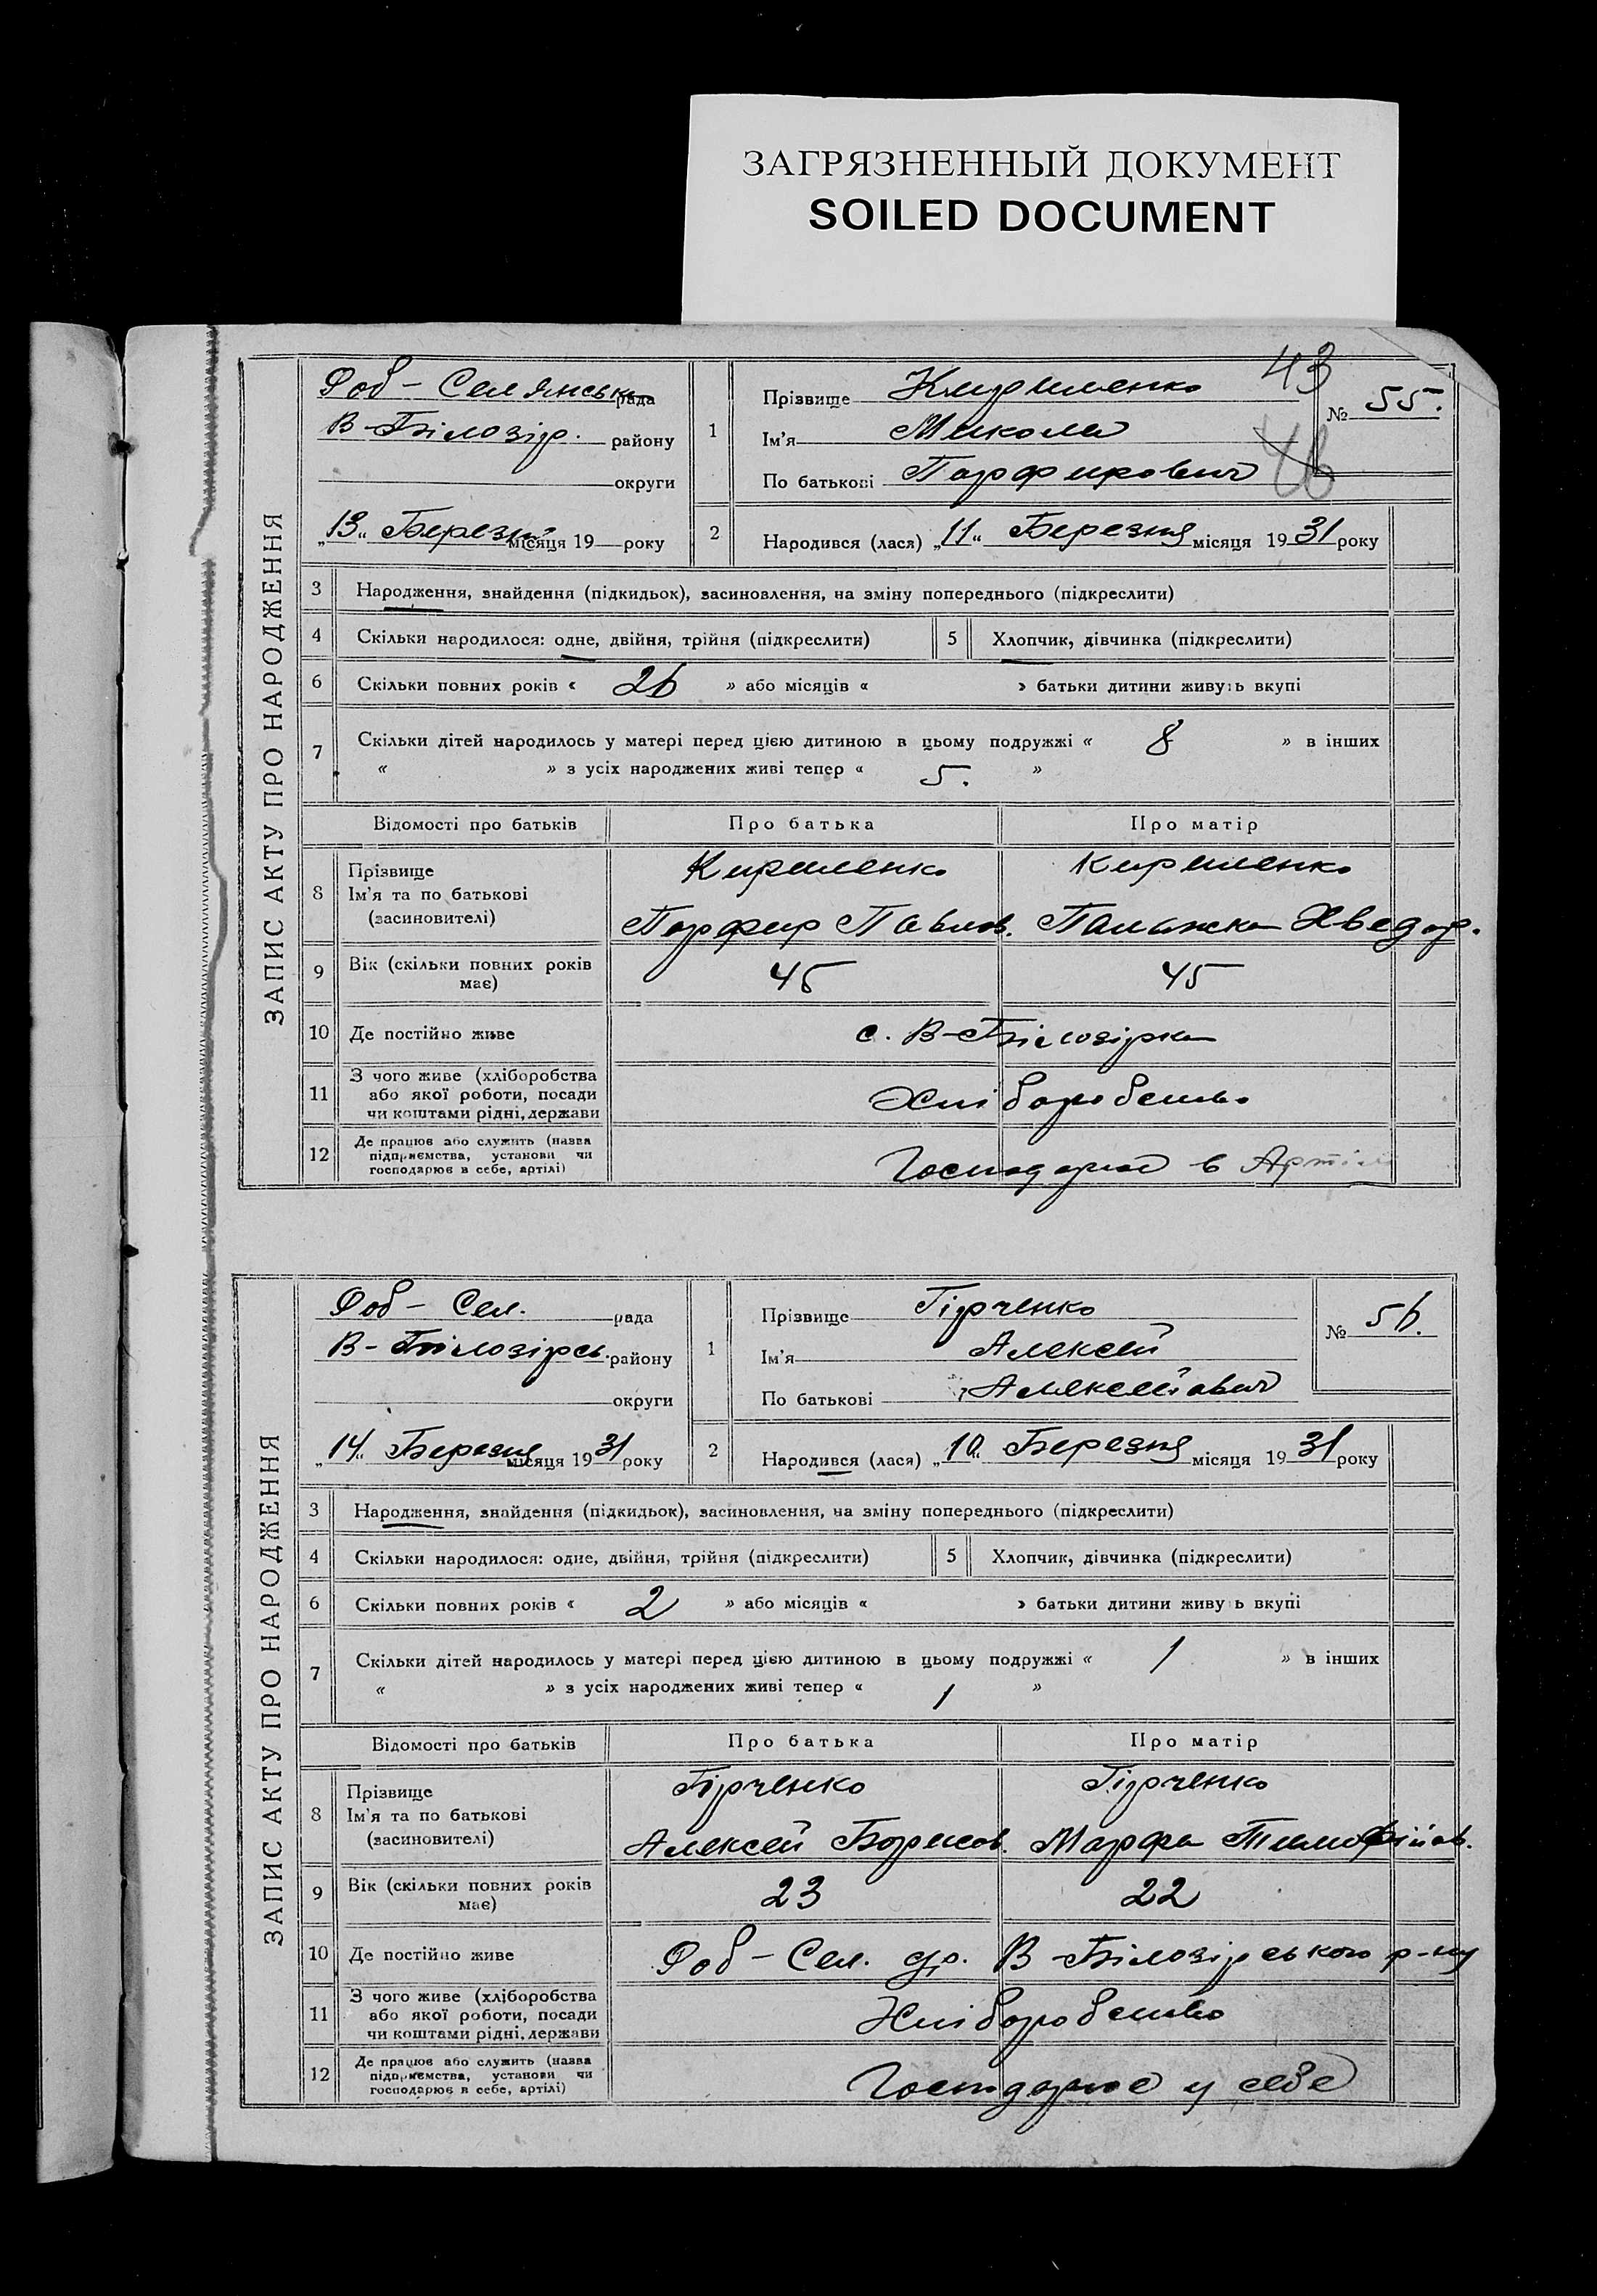 ЗАГРЯЗНЕННЫЙ ДОКУМЕНТ
SOILED DOCUMENT
43
ЗАПИС АКТУ ПРО НАРОДЖЕННЯ
Роб - Селянська рада
В-Білозір. району
округи
„13“ Березня місяця 19 — року
1 Прізвище Кириленко
Ім'я Микола
По батькові Порфирович
№ 55.
46
2 Народився (лася) „11“ Березня місяця 1931 року
3 Народження, знайдення (підкидьок), засиновлення, на зміну попереднього (підкреслити)
4 Скільки народилося: одне, двійня, трійня (підкреслити) 5 Хлопчик, дівчинка (підкреслити)
6 Скільки повних років « 26 » або місяців « » батьки дитини живуть вкупі
7 Скільки дітей народилось у матері перед цією дитиною в цьому подружжі « 8 » в інших
« » з усіх народжених живі тепер « 5. »
Відомості про батьків Про батька Про матір
8 Прізвище Кириленко Кириленко
Ім'я та по батькові
(засиновителі) Порфир Павлов. Палажка Хведор.
9 Вік (скільки повних років
має) 45 45
10 Де постійно живе с. В-Білозірка
11 З чого живе (хліборобства
або якої роботи, посади
чи коштами рідні, держави Хліборобство
12 Де працює або служить (назва
підприємства, установи чи
господарює в себе, артілі) Господарює в Артілі
ЗАПИС АКТУ ПРО НАРОДЖЕННЯ
Роб - Сел. рада
В-Білозірсь. району
округи
„14“ Березня місяця 1931 року
1 Прізвище Гірченко
Ім'я Алексей
По батькові Алексейович
№ 56.
2 Народився (лася) „10“ Березня місяця 1931 року
3 Народження, знайдення (підкидьок), засиновлення, на зміну попереднього (підкреслити)
4 Скільки народилося: одне, двійня, трійня (підкреслити) 5 Хлопчик, дівчинка (підкреслити)
6 Скільки повних років « 2 » або місяців « » батьки дитини живуть вкупі
7 Скільки дітей народилось у матері перед цією дитиною в цьому подружжі « 1 » в інших
« » з усіх народжених живі тепер « 1 »
Відомості про батьків Про батька Про матір
8 Прізвище Гірченко Гірченко
Ім'я та по батькові
(засиновителі) Алексей Борисов. Марфа Тимофійов.
9 Вік (скільки повних років
має) 23 22
10 Де постійно живе Роб - Сел. с/р. В-Білозірського р-ну
11 З чого живе (хліборобства
або якої роботи, посади
чи коштами рідні, держави Хліборобство
12 Де працює або служить (назва
підприємства, установи чи
господарює в себе, артілі) Господарює у себе